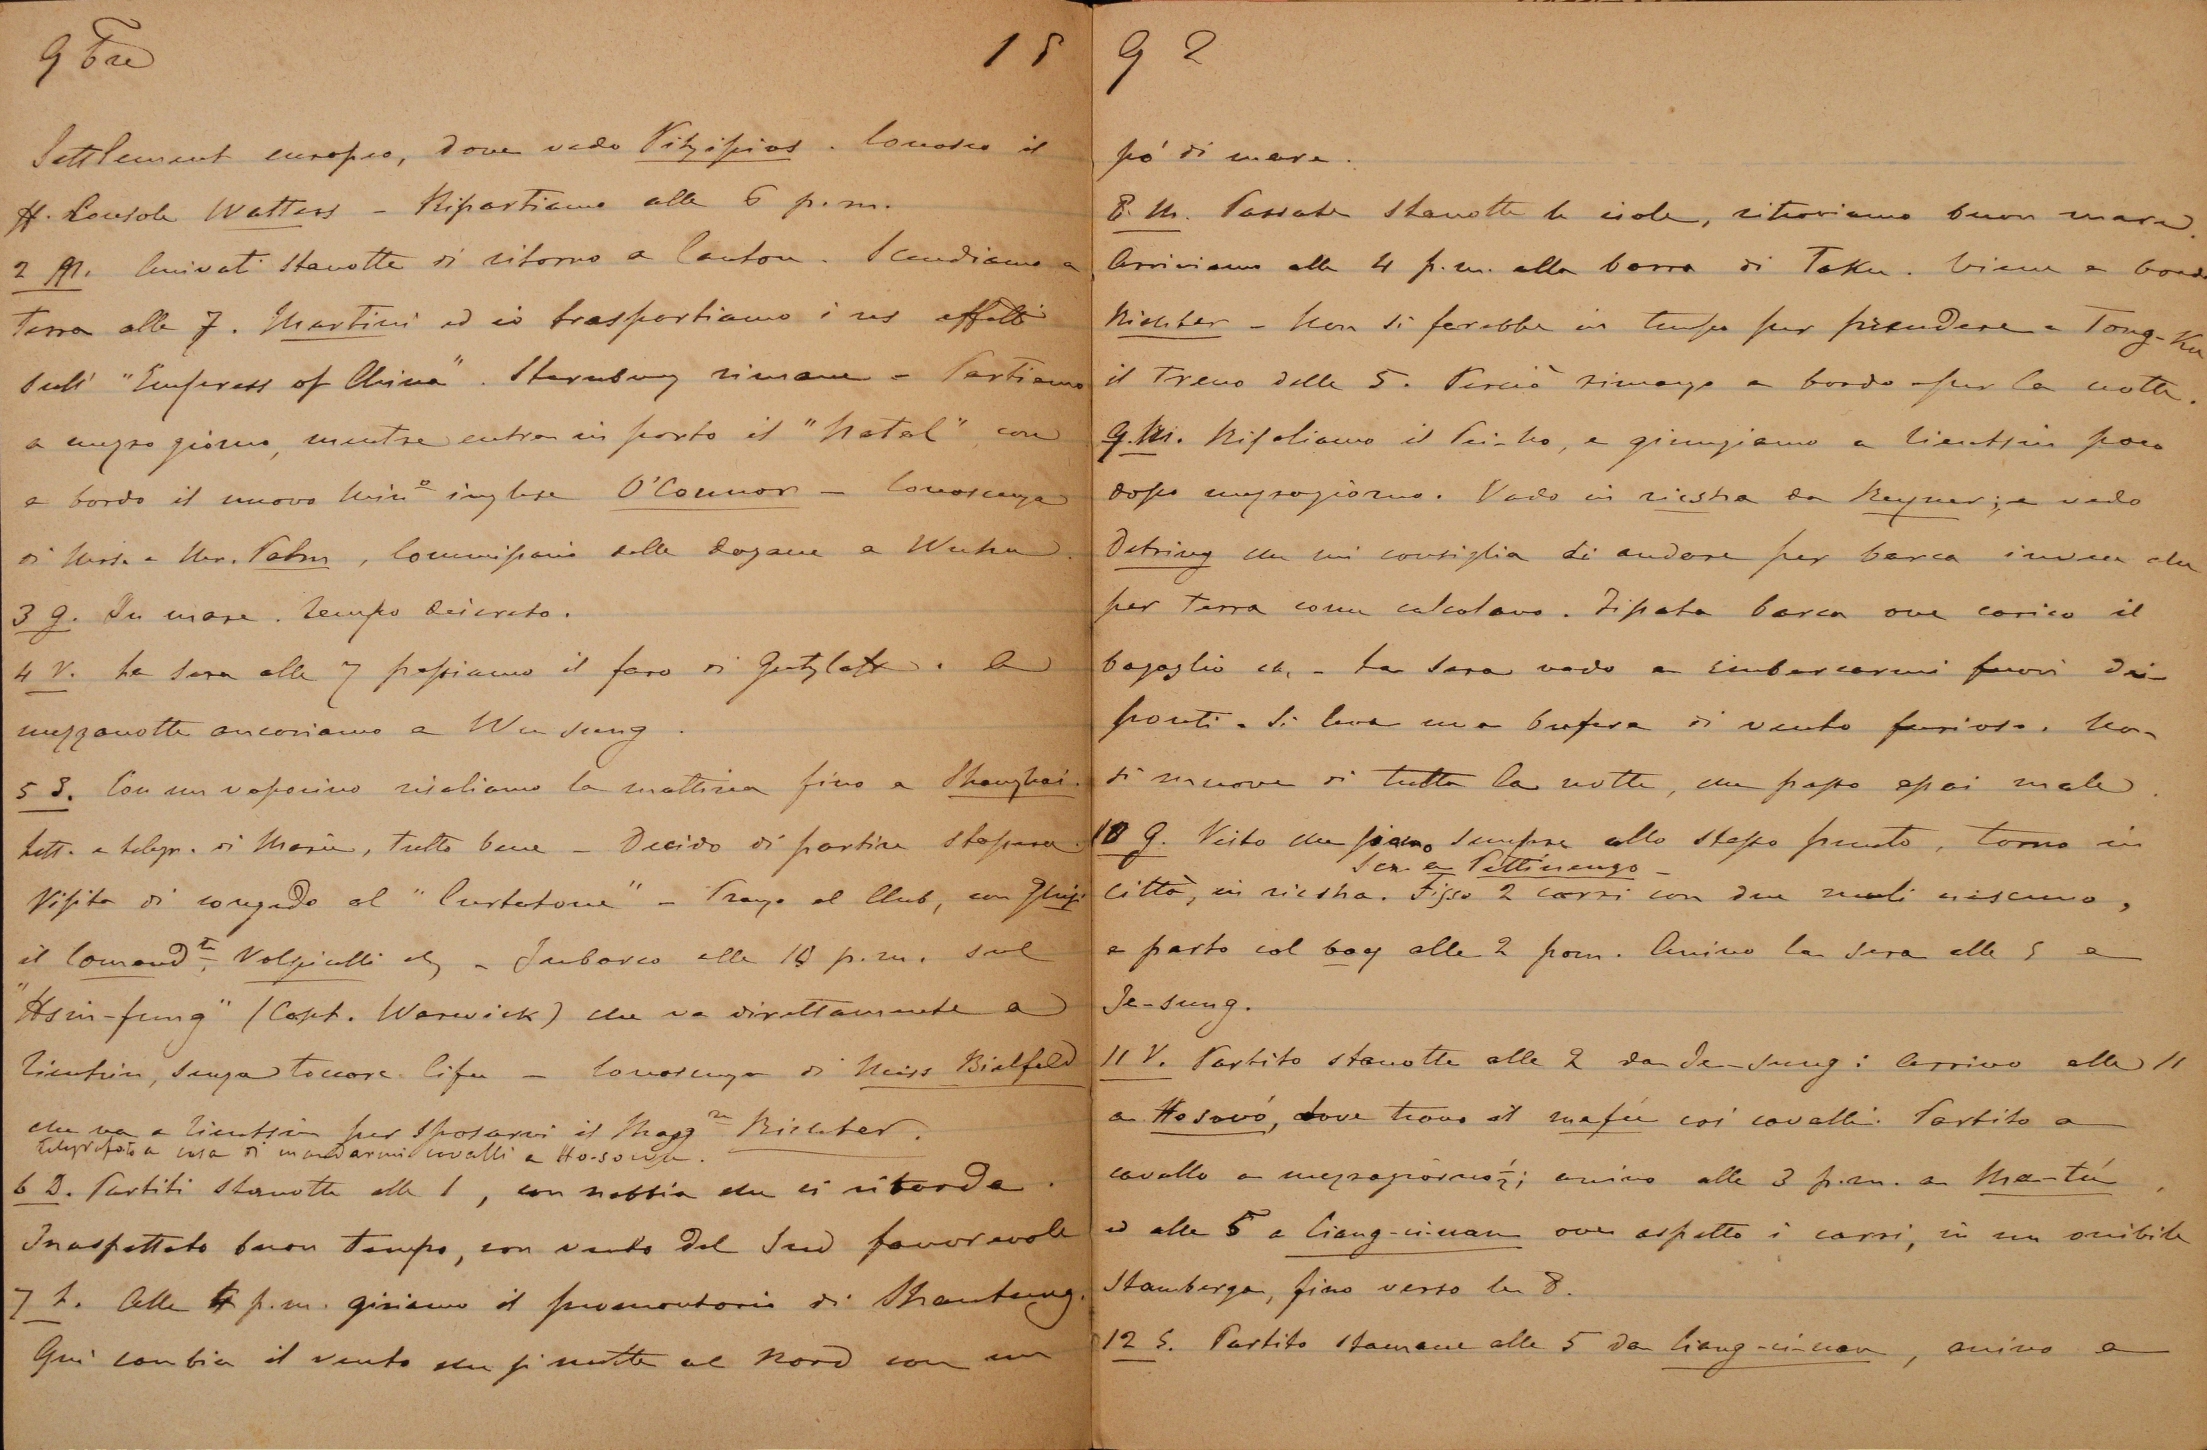 9bre 18
Settlement europeo, dove vedo Vitzipios. Conosco il
H. Console Watters - Ripartiamo alle 6 p.m.
2 M. Arrivati stanotte di ritorno a Canton. Scendiamo a
Terra alle 7. Martini ed io trasportiamo i ns effetti
sull' "Empress of China". Sternburg rimane - Partiamo
a mezzo giorno, mentre entra in porto il "Natal" con
a bordo il nuovo Mino inglese O'Connor - Conoscenza
di Mrs. e Mr. Palm, Commissario delle dogane a Wuhu.
3 G. In mare. Tempo discreto.
4 V. La sera alle 7 passiamo il faro di Gutzlaff. A
mezzanotte ancoriamo a Wusung.
5 S. Con un vaporino risaliamo la mattina fino a Shanghai.
Lett. e telegr. di Maria, tutto bene - Decido di partire stassera.
Visita di congedo al "Curtatone" - Pranzo al Club, con Ghisi
il Comandte, Volpicelli etc - Imbarco alle 10 p.m. sul
"Hsin-fung" (Capt. Warwick) che va direttamente a
Tientsin, senza toccare Cifu - Conoscenza di Miss Bielfeld
che va a Tientsin per sposarvi il Maggre Richter.
Telegrafato a casa di mandarmi cavalli a Ho-sowu.
6 D. Partiti stanotte alle 1, con nebbia che ci ritarda.
Inaspettato buon tempo, con vento del Sud favorevole
7 L. Alle 4 p.m. giriamo il promontorio di Shantung.
Qui cambia il vento che si mette al Nord con un
92
pò di mare.
8. M. Passate stanotte le isole, ritroviamo buon mare.
Arriviamo alle 4 p.m. alla barra di Taku. Viene a bordo
Richter - Non si farebbe in tempo per prendere a Tong-Ku
il Treno delle 5. Perciò rimango a bordo per la notte.
9. M. Risaliamo il Pei-ho, e giungiamo a Tientsin poco
dopo mezzogiorno. Vado in ricsha da Reyner; e vedo
Detring che mi consiglia di andare per barca invece che
per terra come calcolavo. Fissata barca ove carico il
bagaglio etc. - La sera vado a imbarcarmi fuori dei
ponti. Si leva una bufera di vento furioso. Non
si muove di tutta la notte, che passo assai male.
10 G. Visto che siamo sempre allo stesso punto, torno in
Scr. a Pettinengo -
città, in ricsha. Fisso 2 carri con due muli ciascuno,
e parto col boy alle 2 pom. Arrivo la sera alle 5 a
Je-sung.
11 V. Partito stanotte alle 2 da Je-sung: Arrivo alle 11
a Hosowó, dove trovo il mafú coi cavalli. Partito a
cavallo a mezzogiorno ½; arrivo alle 3 p.m. a Ma-tú,
ed alle 5 a Ciang-ci-uan ove aspetto i carri, in un orribile
Stamberga, fino verso le 8.
12 S. Partito stamane alle 5 da Ciang-ci-uan, arrivo a